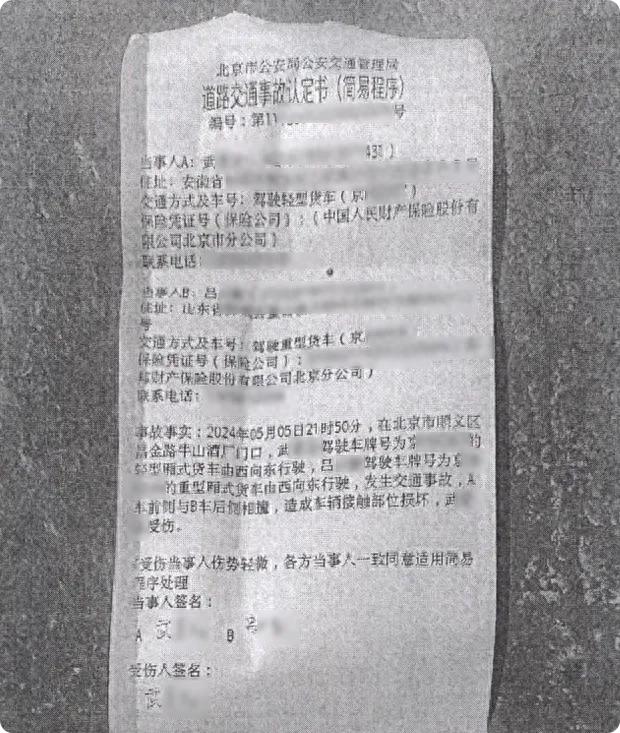 北京市公安局公安交通管理局
道路交通事故认定书（简易程序）
编号：第11 号
当事人A：武 431）
住址：安徽省
交通方式及车号：驾驶轻型货车（京 ）
保险凭证号（保险公司）：（中国人民财产保险股份有
限公司北京市分公司）
联系电话：
当事人B：吕
住址：山东省
号
交通方式及车号：驾驶重型货车（京
保险凭证号（保险公司）：
财产保险股份有限公司北京分公司）
联系电话：
事故事实：2024年05月05日21时50分，在北京市顺义区
昌金路牛山酒厂门口，武 驾驶车牌号为京 的
轻型厢式货车由西向东行驶，吕 驾驶车牌号为京
的重型厢式货车由西向东行驶，发生交通事故，A
车前侧与B车后侧相撞，造成车辆接触部位损坏，武
受伤。
受伤当事人伤势轻微，各方当事人一致同意适用简易
程序处理
当事人签名：
A 武 B 吕
受伤人签名：
武